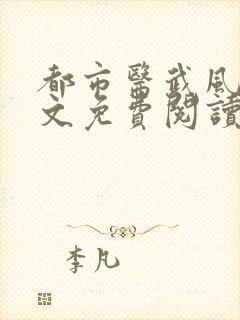 都市醫武風
文免費閱讀
李凡